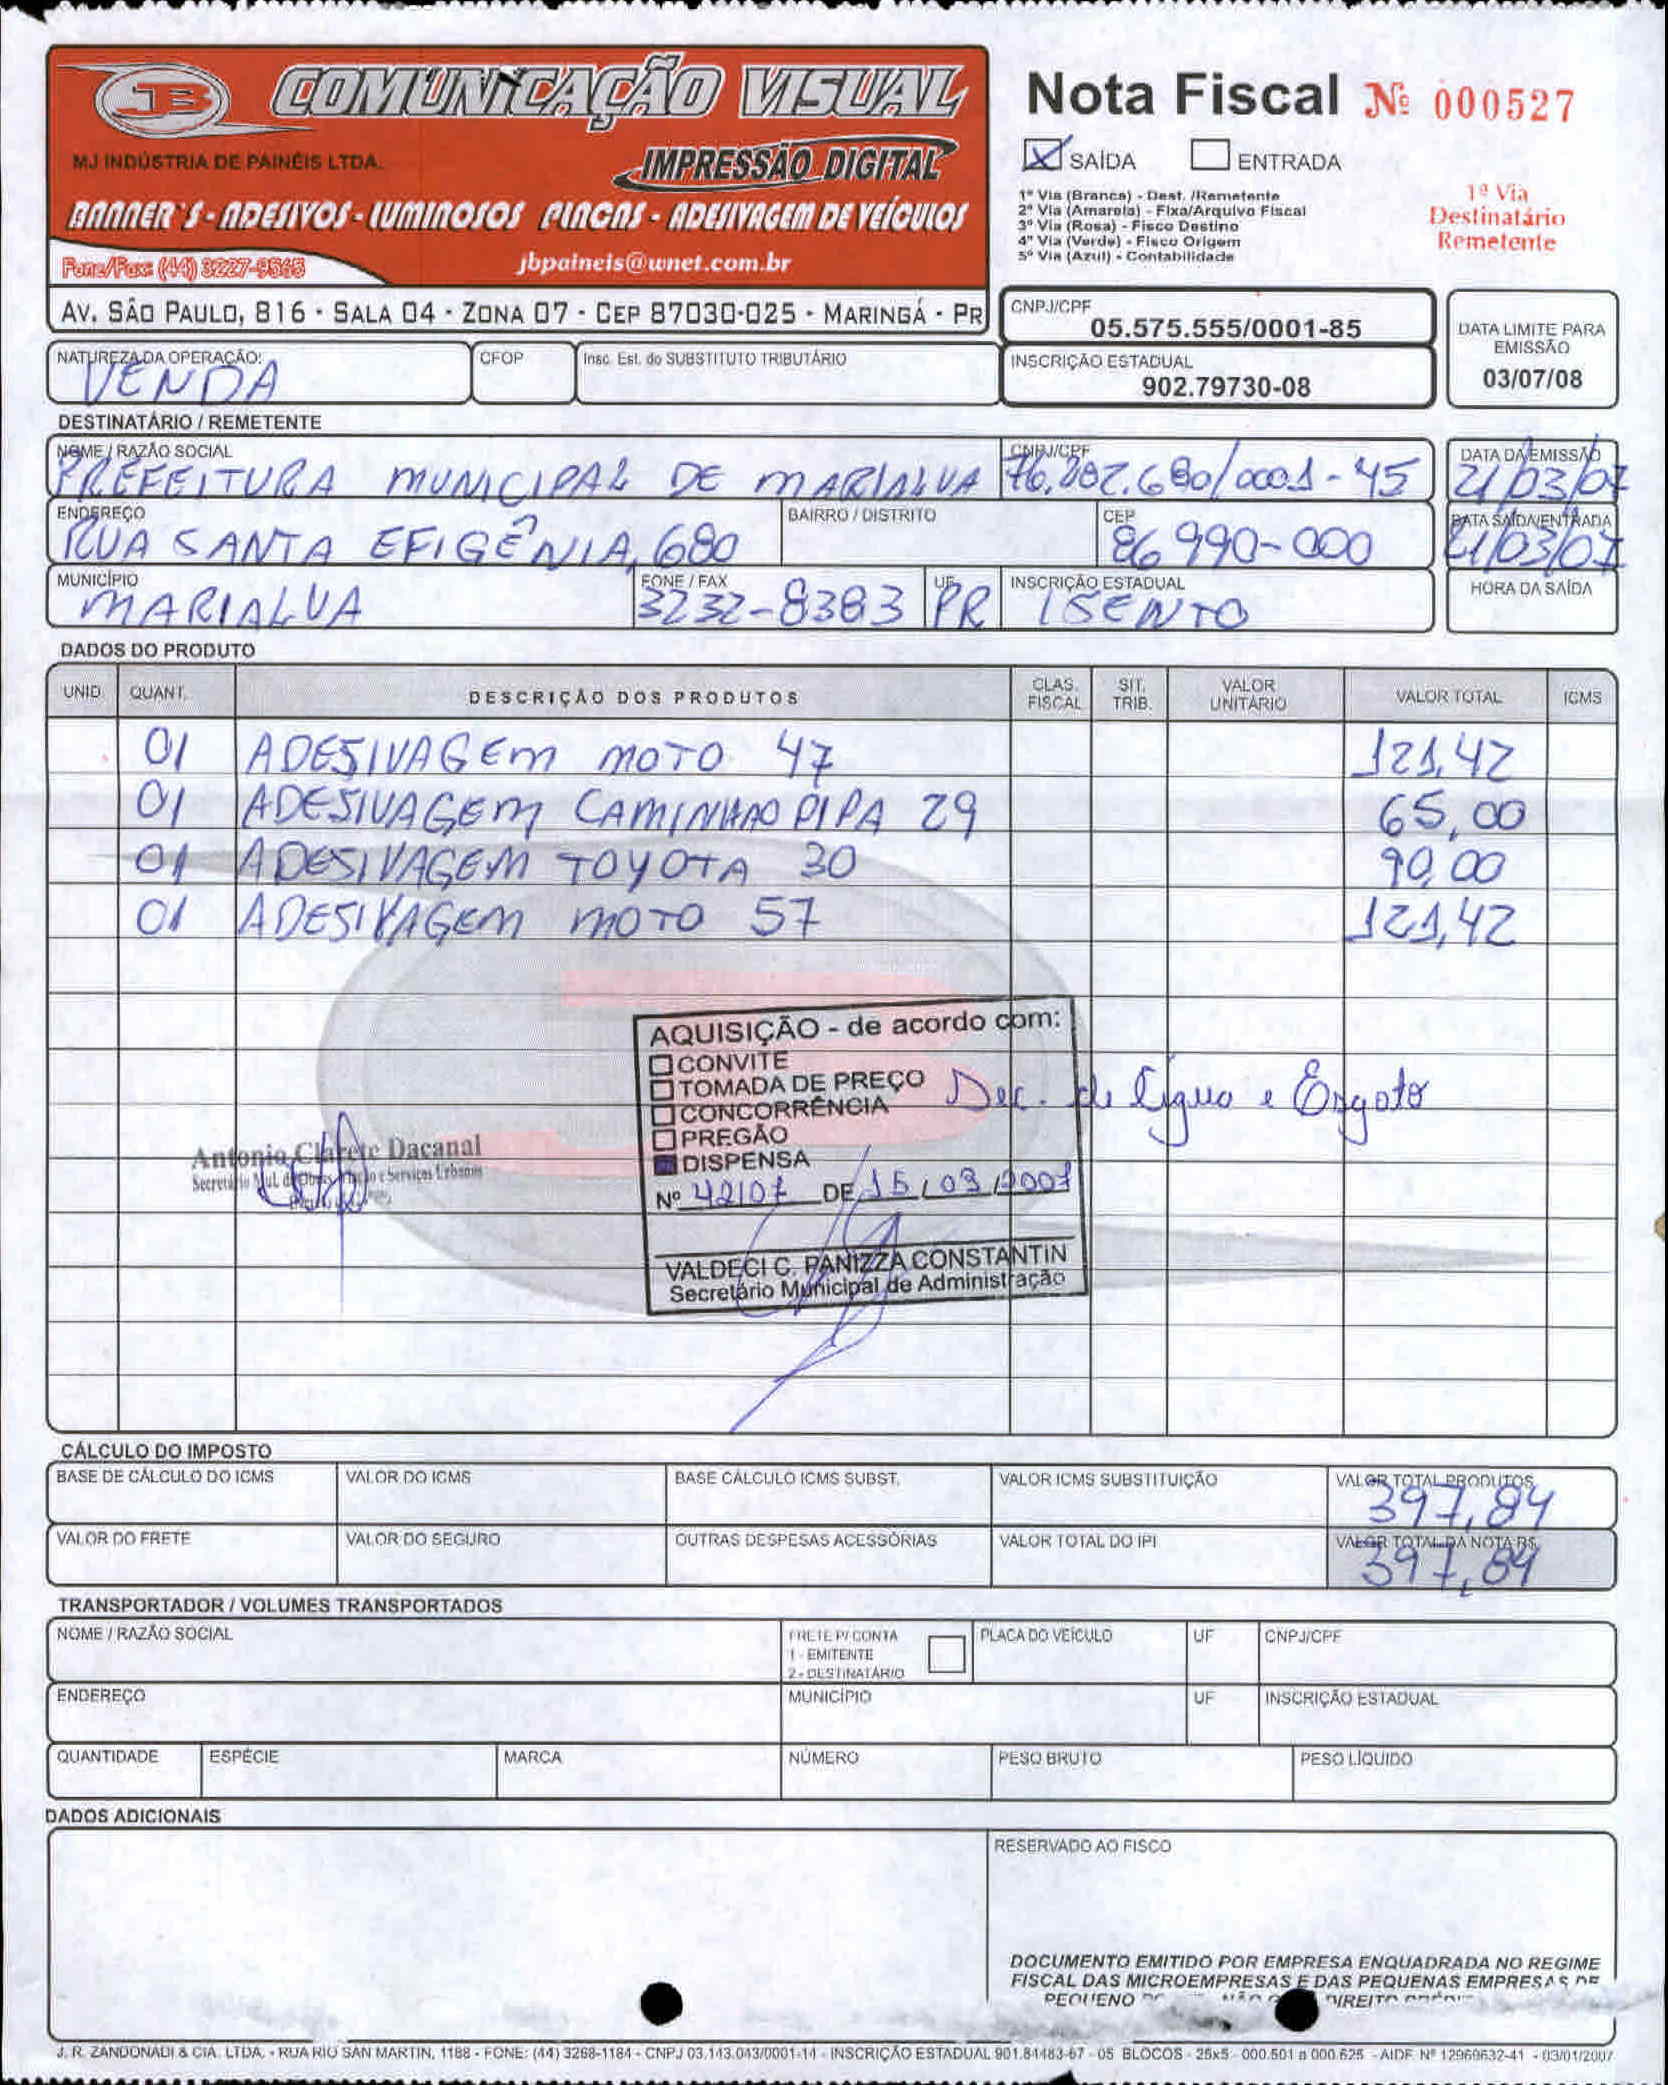 JB COMUNICAÇÃO VISUAL
MJ INDÚSTRIA DE PAINÉIS LTDA.
IMPRESSÃO DIGITAL
BANNER'S - ADESIVOS - LUMINOSOS PLACAS - ADESIVAGEM DE VEÍCULOS
Fone/Fax: (44) 3227-9565
jbpaineis@wnet.com.br
AV. SÃO PAULO, 816 - SALA 04 - ZONA 07 - CEP 87030-025 - MARINGÁ - PR
Nota Fiscal Nº 000527
X SAÍDA ENTRADA
1ª Via (Branca) - Dest. /Remetente
2ª Via (Amarela) - Fixa/Arquivo Fiscal
3ª Via (Rosa) - Fisco Destino
4ª Via (Verde) - Fisco Origem
5ª Via (Azul) - Contabilidade
1ª Via
Destinatário
Remetente
CNPJ/CPF
05.575.555/0001-85
INSCRIÇÃO ESTADUAL
902.79730-08
DATA LIMITE PARA
EMISSÃO
03/07/08
NATUREZA DA OPERAÇÃO: CFOP Insc. Est. do SUBSTITUTO TRIBUTÁRIO
VENDA
DESTINATÁRIO / REMETENTE
NOME / RAZÃO SOCIAL CNPJ/CPF DATA DA EMISSÃO
PREFEITURA MUNICIPAL DE MARIALVA 76.282.680/0001-45 21/03/07
ENDEREÇO BAIRRO / DISTRITO CEP DATA SAÍDA/ENTRADA
RUA SANTA EFIGÊNIA, 680 86990-000 21/03/07
MUNICÍPIO FONE / FAX UF INSCRIÇÃO ESTADUAL HORA DA SAÍDA
MARIALVA 3232-8383 PR ISENTO
DADOS DO PRODUTO
UNID QUANT. DESCRIÇÃO DOS PRODUTOS CLAS. FISCAL SIT. TRIB. VALOR UNITÁRIO VALOR TOTAL ICMS
01 ADESIVAGEM MOTO 47 121,42
01 ADESIVAGEM CAMINHAO PIPA 29 65,00
01 ADESIVAGEM TOYOTA 30 90,00
01 ADESIVAGEM MOTO 57 121,42
AQUISIÇÃO - de acordo com:
CONVITE
TOMADA DE PREÇO
CONCORRÊNCIA
PREGÃO
DISPENSA
Nº 42107 DE 15/03/2007
VALDECI C. PANIZZA CONSTANTIN
Secretário Municipal de Administração
de Água e Esgoto
Antonio Clarete Dacanal
CÁLCULO DO IMPOSTO
BASE DE CÁLCULO DO ICMS VALOR DO ICMS BASE CÁLCULO ICMS SUBST. VALOR ICMS SUBSTITUIÇÃO VALOR TOTAL PRODUTOS
397,84
VALOR DO FRETE VALOR DO SEGURO OUTRAS DESPESAS ACESSÓRIAS VALOR TOTAL DO IPI VALOR TOTAL DA NOTA R$
397,84
TRANSPORTADOR / VOLUMES TRANSPORTADOS
NOME / RAZÃO SOCIAL FRETE P/ CONTA PLACA DO VEÍCULO UF CNPJ/CPF
1 - EMITENTE
2 - DESTINATÁRIO
ENDEREÇO MUNICÍPIO UF INSCRIÇÃO ESTADUAL
QUANTIDADE ESPÉCIE MARCA NÚMERO PESO BRUTO PESO LÍQUIDO
DADOS ADICIONAIS
RESERVADO AO FISCO
DOCUMENTO EMITIDO POR EMPRESA ENQUADRADA NO REGIME
FISCAL DAS MICROEMPRESAS E DAS PEQUENAS EMPRESAS DE
PEQUENO
J. R. ZANDONADI & CIA. LTDA. - RUA RIO SAN MARTIN, 1188 - FONE: (44) 3268-1184 - CNPJ 03.143.043/0001-14 - INSCRIÇÃO ESTADUAL 901.84483-67 - 05 BLOCOS - 25x5 - 000.501 a 000.625 - AIDF Nº 12969632-41 - 03/01/2007